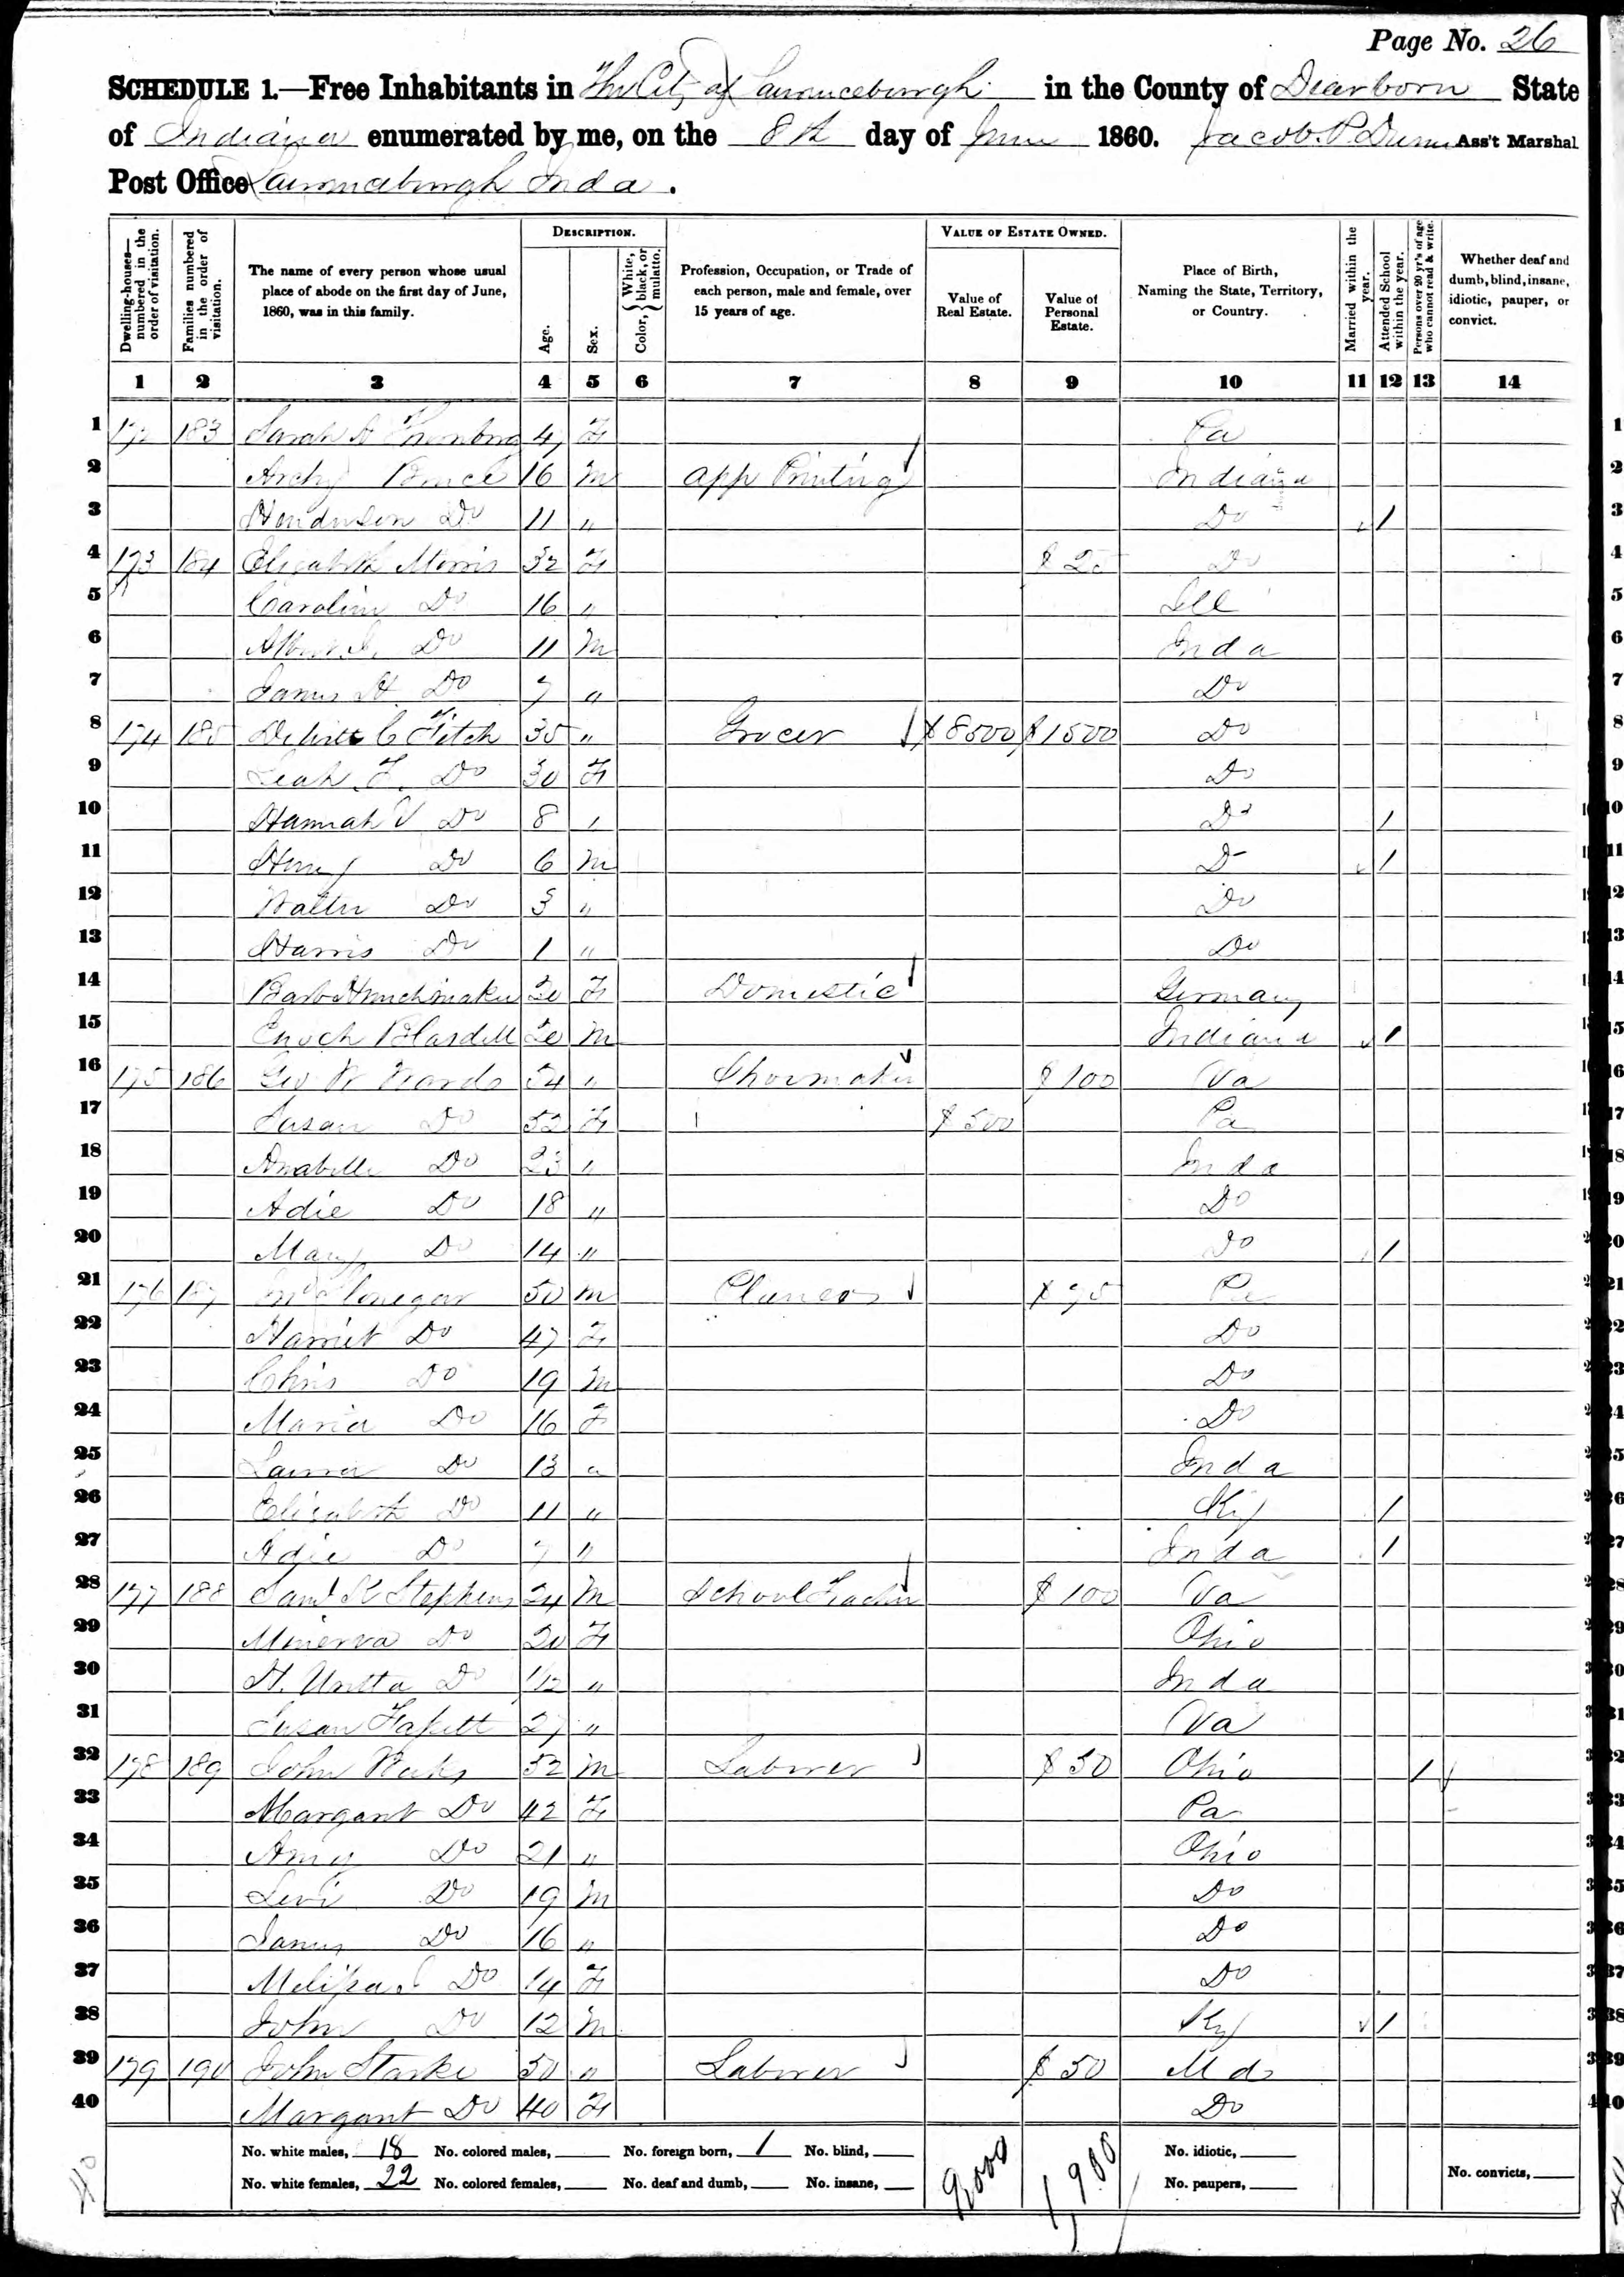 Page No. 26
SCHEDULE 1.—Free Inhabitants in The City of Lawrenceburgh in the County of Dearborn State
of Indiana enumerated by me, on the 8th day of June 1860. Jacob P. Dunn Ass't Marshal
Post Office Lawrenceburgh Inda.
DESCRIPTION. VALUE OF ESTATE OWNED.
Dwelling-houses—numbered in the order of visitation. Families numbered in the order of visitation. The name of every person whose usual place of abode on the first day of June, 1860, was in this family. Age. Sex. Color, { White, black, or mulatto. Profession, Occupation, or Trade of each person, male and female, over 15 years of age. Value of Real Estate. Value of Personal Estate. Place of Birth, Naming the State, Territory, or Country. Married within the year. Attended School within the year. Persons over 20 yr's of age who cannot read & write. Whether deaf and dumb, blind, insane, idiotic, pauper, or convict.
1 2 3 4 5 6 7 8 9 10 11 12 13 14
1 172 183 Sarah A 47 F Pa 1
2 Archy Bruce 16 M App Printing Indiana 2
3 Henderson Do 11 " Do 1 3
4 173 184 Elizabeth Morris 32 F Do 4
5 Caroline Do 16 " Ill 5
6 Do 11 M Inda 6
7 James H Do 7 " Do 7
8 174 185 Dewitt C Fitch 35 " Grocer $8500 $1500 Do 8
9 Leah F. Do 30 F Do 9
10 Hannah V Do 8 " Do 1 10
11 Henry Do 6 M Do 1 11
12 Walter Do 3 " Do 12
13 Harris Do 1 " Do 13
14 Barb 20 F Domestic Germany 14
15 Enoch Blasdell 20 M Indiana 1 15
16 175 186 Geo W 54 " Shoemaker $100 Va 16
17 Susan Do 52 F $500 Pa 17
18 Anabelle Do 23 " Inda 18
19 Adie Do 18 " Do 19
20 Mary Do 14 " Do 1 20
21 176 187 50 M $75 Pa 21
22 Harriet Do 47 F Do 22
23 Chris Do 19 M Do 23
24 Maria Do 16 F Do 24
25 Laura Do 13 " Inda 25
26 Elizabeth Do 11 " Ky 1 26
27 Adie Do 7 " Inda 1 27
28 177 188 Saml K Stephens 24 M School Teacher $100 Va 28
29 Minerva Do 20 F Ohio 29
30 Do 1/12 " Inda 30
31 Susan 27 " Va 31
32 178 189 John 52 M Laborer $50 Ohio 1 32
33 Margaret Do 42 F Pa 33
34 Amy Do 21 " Ohio 34
35 Levi Do 19 M Do 35
36 James Do 16 " Do 36
37 Melissa Do 14 F Do 37
38 John Do 12 M Ky 1 38
39 179 190 John Starke 50 " Laborer $50 Md 39
40 Margaret Do 40 F Do 40
No. white males, 18 No. colored males, No. foreign born, 1 No. blind, 9,000 1,900 No. idiotic,
No. white females, 22 No. colored females, No. deaf and dumb, No. insane, No. paupers, No. convicts,
40